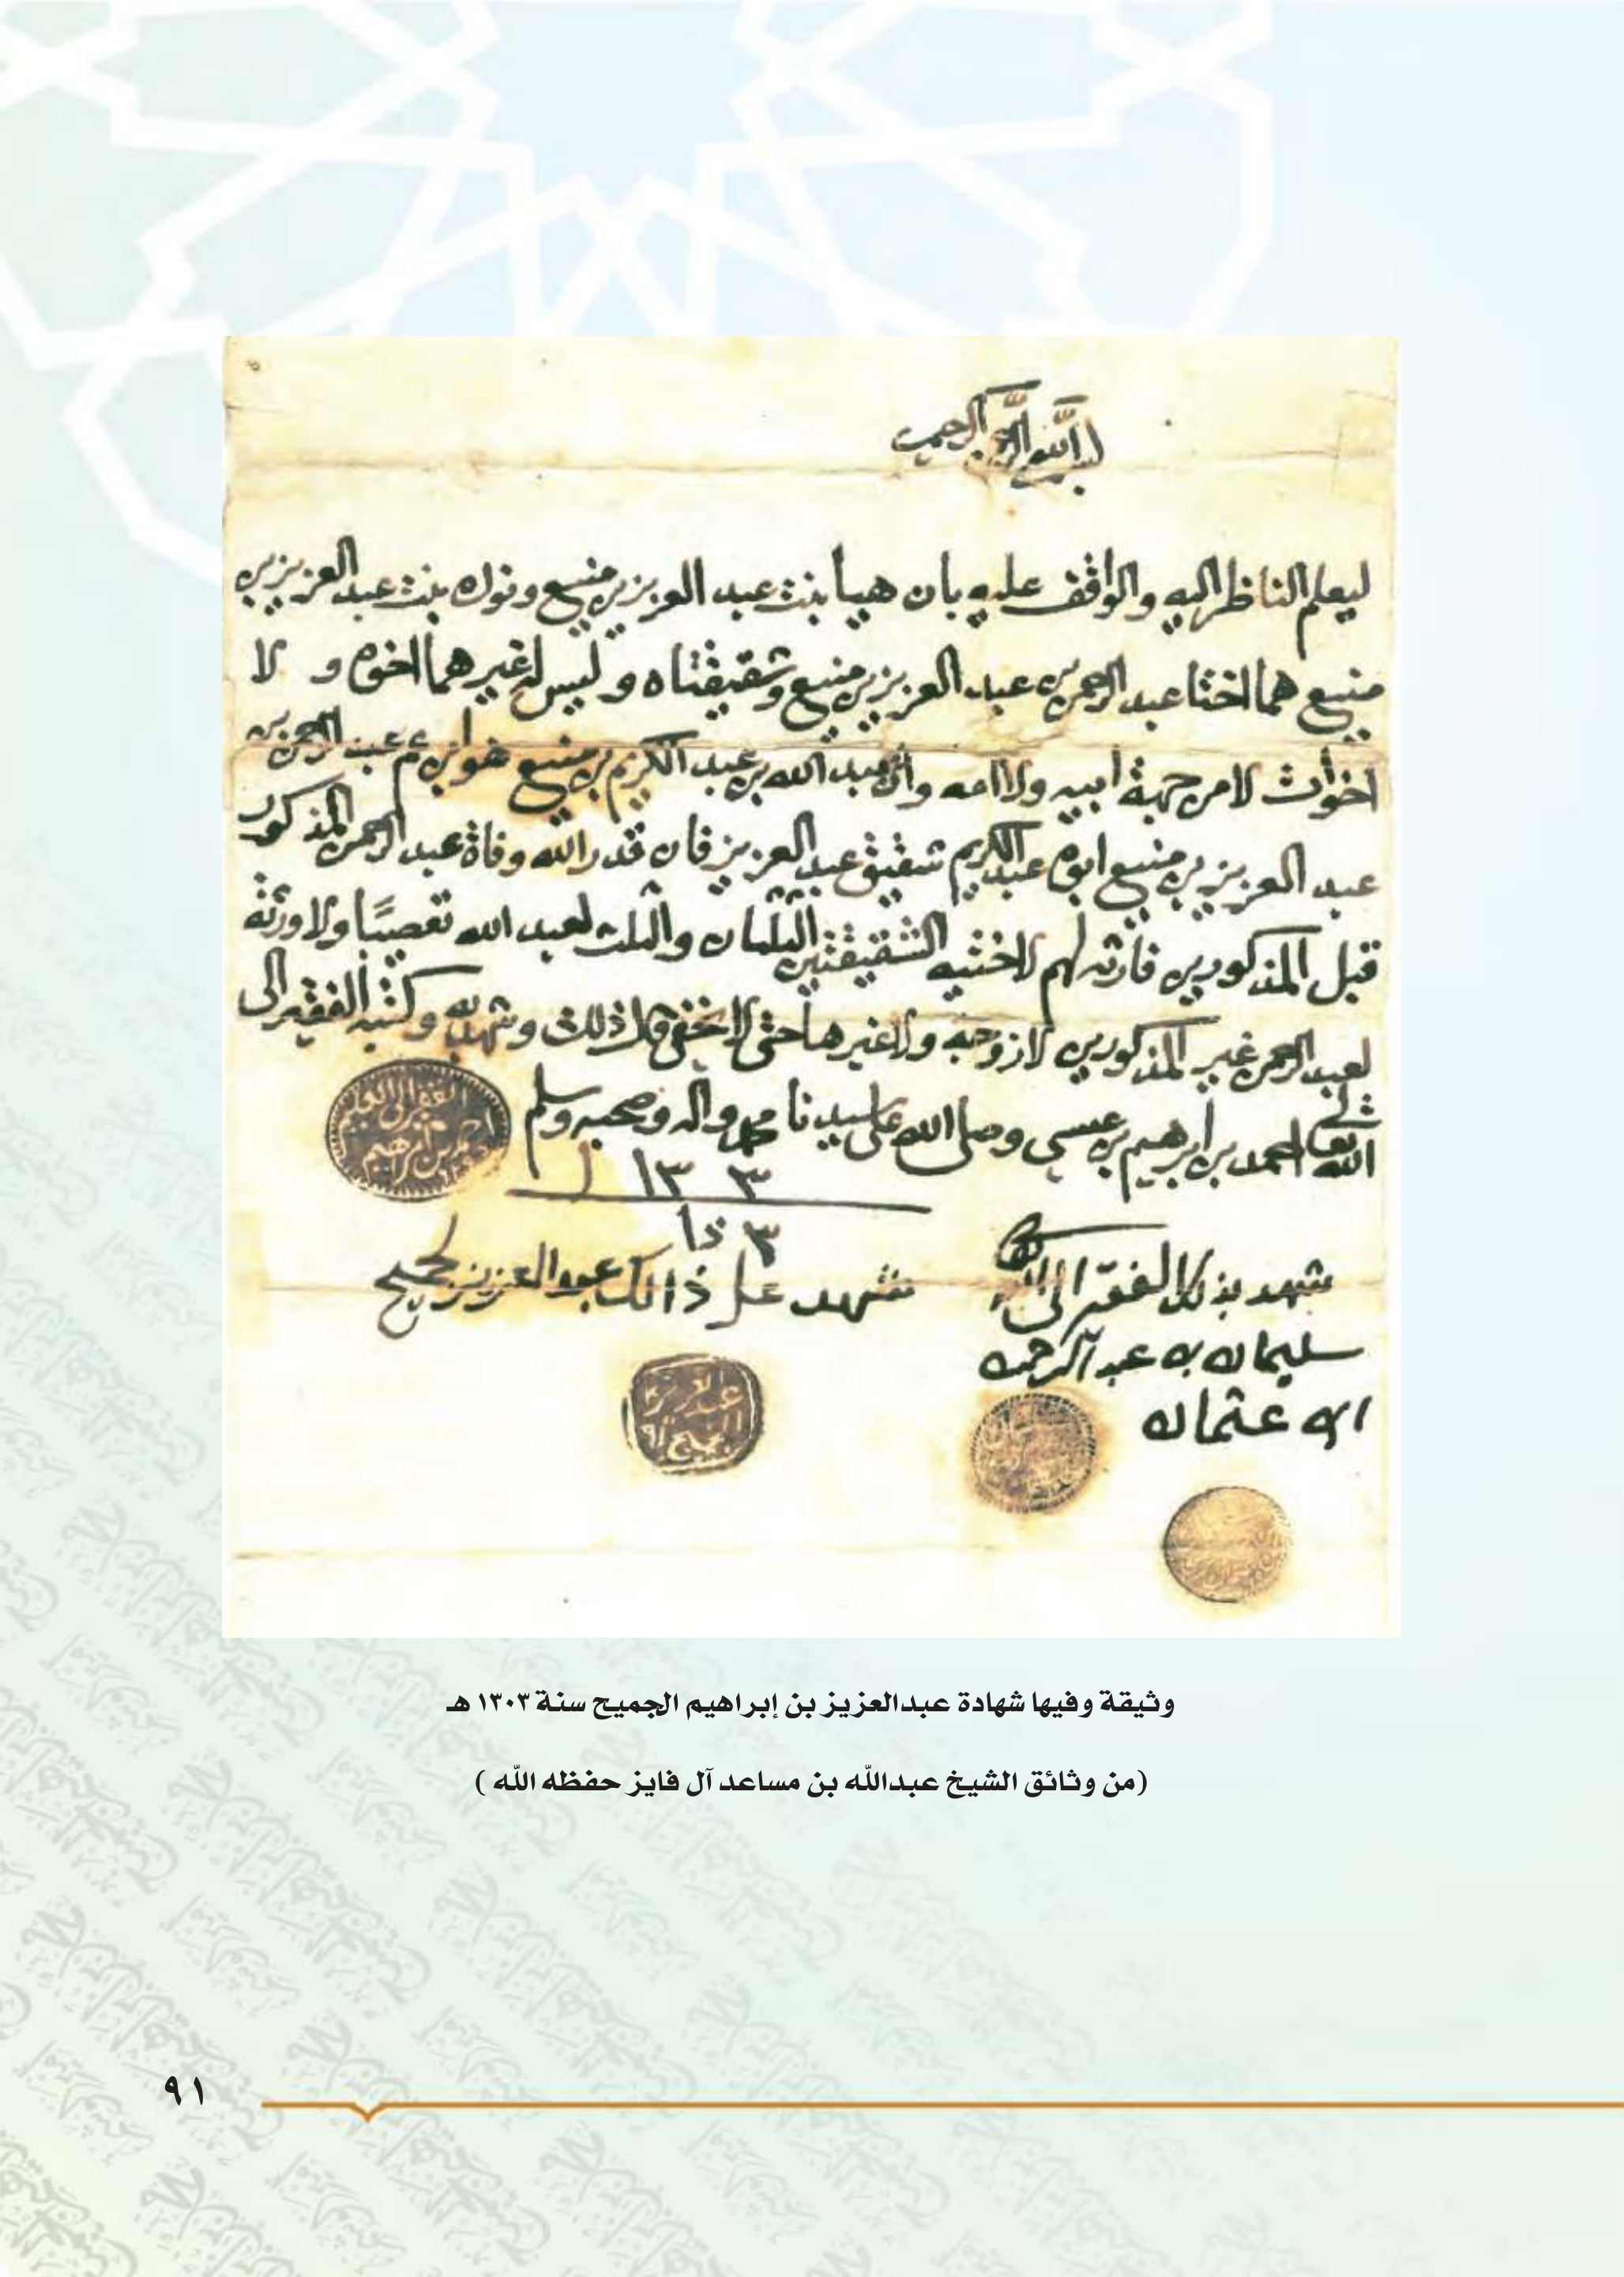 بسم الله الرحمن الرحيم
ليعلم الناظر اليه والواقف عليه بان هيا بنت عبد العزيز بن منيع ونوره بنت عبد العزيز بن
منيع هما اختا عبد الرحمن بن عبد العزيز بن منيع وشقيقتاه وليس له غيرهما اخوه و لا
اخوات لا من جهة ابيه ولا امه وان عبد الله بن عبد الكريم بن منيع هو ابن عم عبد الرحمن بن
عبد العزيز بن منيع ابوه عبد الكريم شقيق عبد العزيز فان قدر الله وفاة عبد الرحمن المذكور
قبل المذكورين فارثه لهم لاختيه الشقيقتين الثلثان والثلث لعبد الله تعصيبًا ولا ورثة
لعبد الرحمن غير المذكورين لا زوجه ولا غيرها حتى لا يخفى ذلك وشهد به وكتبه الفقير الى
الله تعالى احمد بن ابرهيم بن عيسى وصلى الله على سيدنا محمد واله وصحبه وسلم
١٣٠٣
شهد بذلك الفقير الى الله
سليمان بن عبد الرحمن
ال عثمان
شهد على ذالك عبد العزيز جميح
الفقير الى الله
احمد بن ابراهيم
عبد العزيز
الجميح
وثيقة وفيها شهادة عبدالعزيز بن إبراهيم الجميح سنة ١٣٠٣ هـ
(من وثائق الشيخ عبدالله بن مساعد آل فايز حفظه الله )
٩١